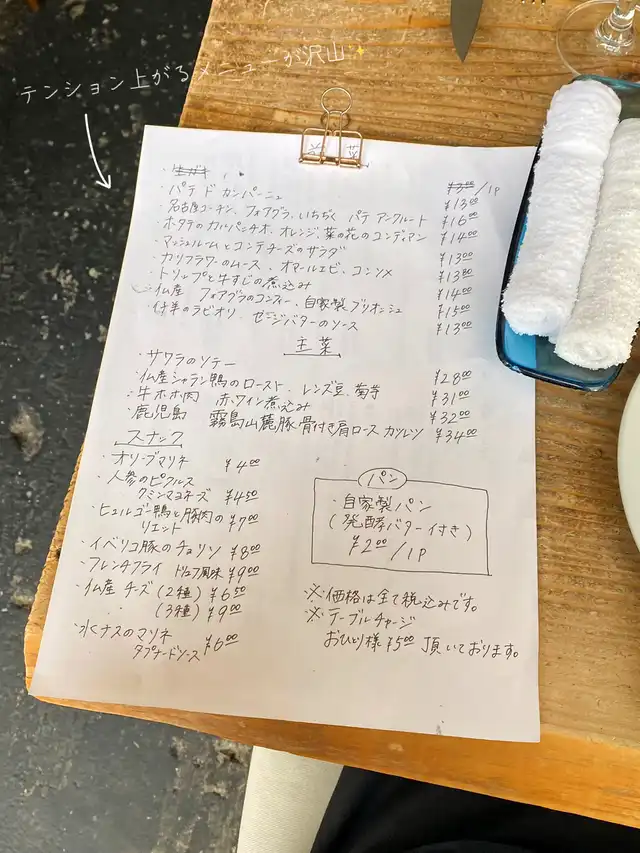 テンション上がるメニューが沢山✨
前菜
・生ガキ ¥3⁰⁰/1P
・パテ ド カンパーニュ ¥13⁰⁰
・名古屋コーチン、フォアグラ、いちぢく パテ アンクルート ¥16⁰⁰
・ホタテのカルパッチオ、オレンジ、菜の花のコンディアン ¥14⁰⁰
・マッシュルームとコンテチーズのサラダ ¥13⁰⁰
・カリフラワーのムース、オマールエビ、コンソメ ¥13⁸⁰
・トリップと牛すじの煮込み ¥14⁰⁰
・仏産 フォアグラのコンフィー、自家製ブリオッシュ ¥15⁰⁰
・仔羊のラビオリ、セージバターのソース ¥13⁰⁰
主菜
・サワラのソテー ¥28⁰⁰
・仏産シャラン鴨のロースト、レンズ豆、菊芋 ¥31⁰⁰
・牛ホホ肉 赤ワイン煮込み ¥32⁰⁰
・鹿児島 霧島山麓豚骨付き肩ロース カツレツ ¥34⁰⁰
スナック
・オリーブマリネ ¥4⁰⁰
・人参のピクルス
クミンマヨネーズ ¥4⁵⁰
・ビュルゴー鴨と豚肉の
リエット ¥7⁰⁰
・イベリコ豚のチョリソ ¥8⁰⁰
・フレンチフライ トリュフ風味 ¥9⁰⁰
・仏産 チーズ (2種) ¥6⁵⁰
(3種) ¥9⁰⁰
・水ナスのマリネ
タプナードソース ¥6⁰⁰
パン
・自家製パン
(発酵バター付き)
¥2⁰⁰/1P
※価格は全て税込みです。
※テーブルチャージ
おひとり様¥5⁰⁰ 頂いております。